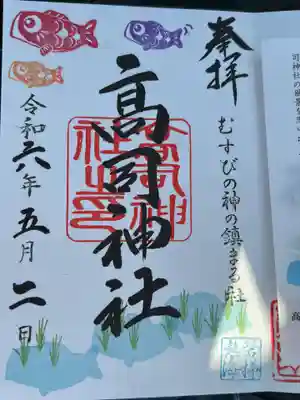 奉拝
むすびの神の鎮まる社
高司神社
令和六年五月二日